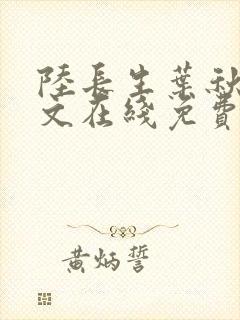 陸長生葉秋
文在綫免費
黄炳誓